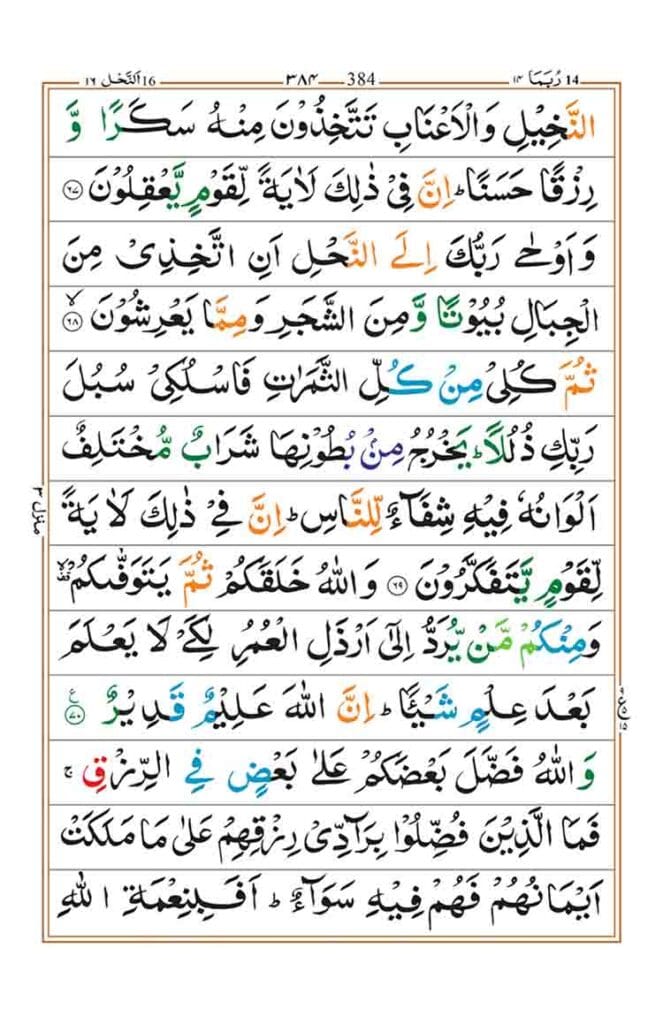 16 اَلنَّحْل ١٦ ٣٨٤ 384 رُبَمَا ١٤ 14
النَّخِيْلِ وَالْاَعْنَابِ تَتَّخِذُوْنَ مِنْهُ سَكَرًا وَّ
رِزْقًا حَسَنًا ؕ اِنَّ فِیْ ذٰلِكَ لَاٰیَةً لِّقَوْمٍ یَّعْقِلُوْنَ ﴿۶۷﴾
وَ اَوْحٰی رَبُّكَ اِلَی النَّحْلِ اَنِ اتَّخِذِیْ مِنَ
الْجِبَالِ بُیُوْتًا وَّ مِنَ الشَّجَرِ وَ مِمَّا یَعْرِشُوْنَ ۙ﴿۶۸﴾
ثُمَّ كُلِیْ مِنْ كُلِّ الثَّمَرٰتِ فَاسْلُكِیْ سُبُلَ
رَبِّكِ ذُلُلًا ؕ یَخْرُجُ مِنْۢ بُطُوْنِهَا شَرَابٌ مُّخْتَلِفٌ
اَلْوَانُهٗ فِیْهِ شِفَآءٌ لِّلنَّاسِ ؕ اِنَّ فِیْ ذٰلِكَ لَاٰیَةً
لِّقَوْمٍ یَّتَفَكَّرُوْنَ ﴿۶۹﴾ وَ اللّٰهُ خَلَقَكُمْ ثُمَّ یَتَوَفّٰىكُمْ ۙ۫
وَ مِنْكُمْ مَّنْ یُّرَدُّ اِلٰۤی اَرْذَلِ الْعُمُرِ لِكَیْ لَا یَعْلَمَ
بَعْدَ عِلْمٍ شَیْـًٔا ؕ اِنَّ اللّٰهَ عَلِیْمٌ قَدِیْرٌ ﴿۷۰﴾ ع
وَ اللّٰهُ فَضَّلَ بَعْضَكُمْ عَلٰی بَعْضٍ فِی الرِّزْقِ ۚ
فَمَا الَّذِیْنَ فُضِّلُوْا بِرَآدِّیْ رِزْقِهِمْ عَلٰی مَا مَلَكَتْ
اَیْمَانُهُمْ فَهُمْ فِیْهِ سَوَآءٌ ؕ اَفَبِنِعْمَةِ اللّٰهِ
منزل ٣